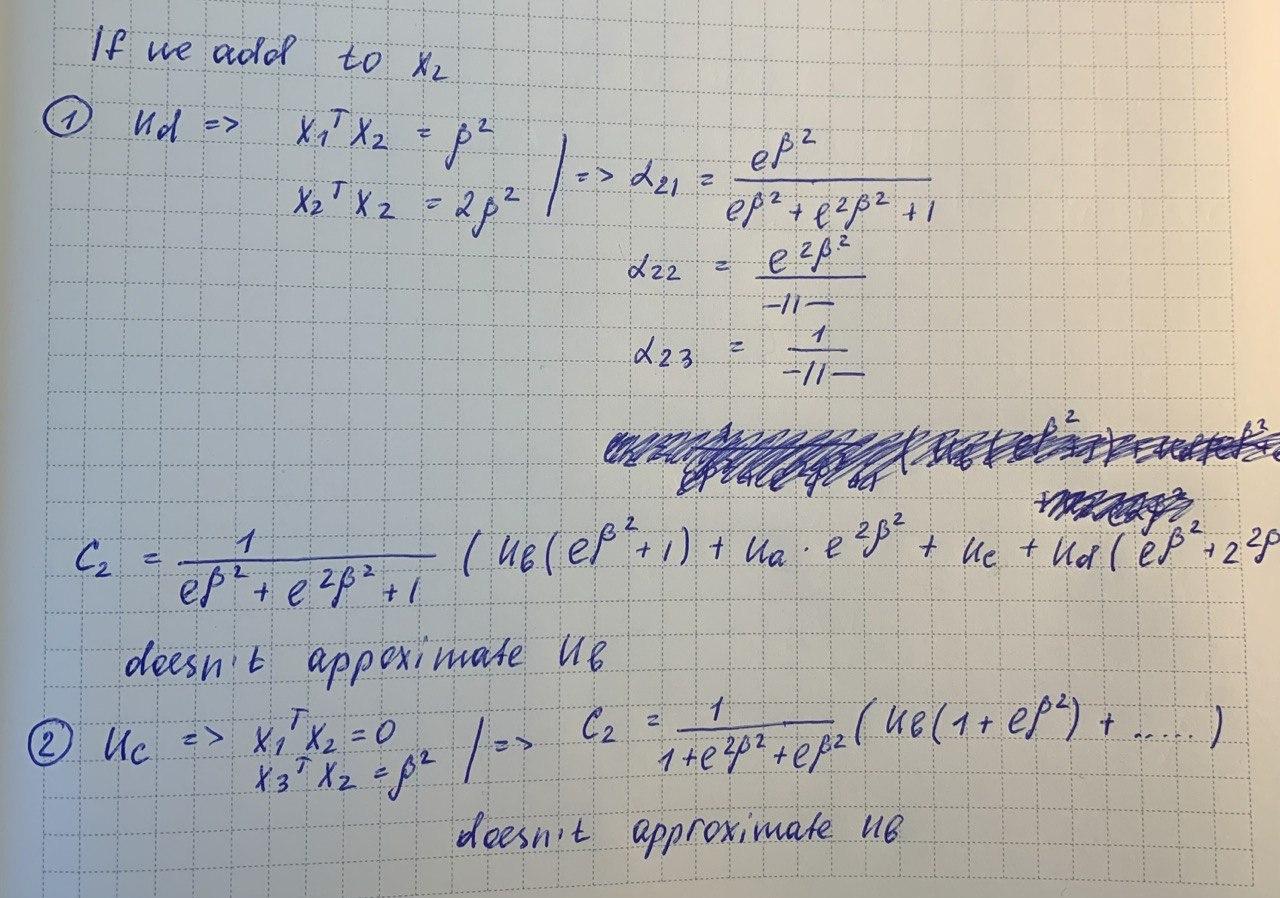 If we add to x₂
① u_d => x₁ᵀ x₂ = β²
x₂ᵀ x₂ = 2β² | => α₂₁ = e^{β²} / (e^{β²} + e^{2β²} + 1)
α₂₂ = e^{2β²} / -||-
α₂₃ = 1 / -||-
c₂ = 1 / (e^{β²} + e^{2β²} + 1) (u_b (e^{β²} + 1) + u_a · e^{2β²} + u_c + u_d (e^{β²} + 2^{2β}
doesn't appoximate u_b
② u_c => x₁ᵀ x₂ = 0
x₃ᵀ x₂ = β² | => c₂ = 1 / (1 + e^{2β²} + e^{β²}) (u_b (1 + e^{β²}) + ..... )
doesn't approximate u_b